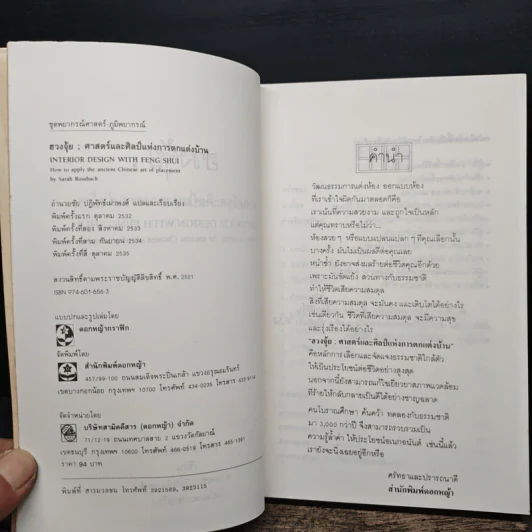 ชุดพยากรณ์ศาสตร์-ภูมิพยากรณ์
ฮวงจุ้ย : ศาสตร์และศิลป์แห่งการตกแต่งบ้าน
INTERIOR DESIGN WITH FENG SHUI
How to apply the ancient Chinese art of placement
by Sarah Rossbach
อำนวยชัย ปฏิพัทธ์เผ่าพงศ์ แปลและเรียบเรียง
พิมพ์ครั้งแรก ตุลาคม 2532
พิมพ์ครั้งที่สอง สิงหาคม 2533
พิมพ์ครั้งที่สาม กันยายน 2534
พิมพ์ครั้งที่สี่ ตุลาคม 2535
สงวนลิขสิทธิ์ตามพระราชบัญญัติลิขสิทธิ์ พ.ศ. 2521
ISBN 974-601-656-3
แบบปกและรูปเล่มโดย
ดอกหญ้ากราฟิก
จัดพิมพ์โดย
สำนักพิมพ์ดอกหญ้า
457/99-100 ถนนสมเด็จพระปิ่นเกล้า แขวงอรุณอมรินทร์
เขตบางกอกน้อย กรุงเทพฯ 10700 โทรศัพท์ 434-0035 โทรสาร
จัดจำหน่ายโดย
บริษัทสามัคคีสาร (ดอกหญ้า) จำกัด
71/12-19 ถนนเทศบาลสาย 2 แขวงวัดกัลยาณ์
เขตธนบุรี กรุงเทพฯ 10600 โทรศัพท์ โทรสาร
ราคา 94 บาท
พิมพ์ที่ สารมวลชน โทรศัพท์
คำนำ
วัฒนธรรมการแต่งห้อง ออกแบบห้อง
ที่เราเข้าใจผิดกันมาตลอดก็คือ
เราเน้นที่ความสวยงาม และถูกใจเป็นหลัก
แต่คุณทราบหรือไม่ว่า...
ห้องสวยๆ หรือแบบแปลนแปลกๆ ที่คุณเลือกนั้น
บางครั้ง มันไม่เป็นผลดีต่อคุณเลย
หนำซ้ำ ยังอาจส่งผลร้ายต่อชีวิตคุณอีกด้วย
เพราะมันขัดแย้ง สวนทางกับธรรมชาติ
ทำให้ชีวิตเสียความสมดุล
สิ่งที่เสียความสมดุล จะมั่นคง และเติบโตได้อย่างไร
เช่นเดียวกัน ชีวิตที่เสียความสมดุล จะมีความสุข
และรุ่งเรืองได้อย่างไร
"ฮวงจุ้ย : ศาสตร์และศิลป์แห่งการตกแต่งบ้าน"
คือหลักการเลือกและจัดแจงธรรมชาติใกล้ตัว
ให้เป็นประโยชน์ต่อชีวิตอย่างสูงสุด
นอกจากนี้ยังสามารถแก้ไขเยียวยาสภาพแวดล้อม
ที่ร้ายให้กลับกลายเป็นดีได้อย่างชาญฉลาด
คนโบราณศึกษา ค้นคว้า ทดลองกับธรรมชาติ
มา 3,000 กว่าปี จึงสามารถรวบรวมเป็น
ความรู้ล้ำค่า ให้ประโยชน์อเนกอนันต์ เช่นนี้แล้ว
เรายังจะนิ่งเฉยอยู่อีกหรือ
ศรัทธาและปรารถนาดี
สำนักพิมพ์ดอกหญ้า